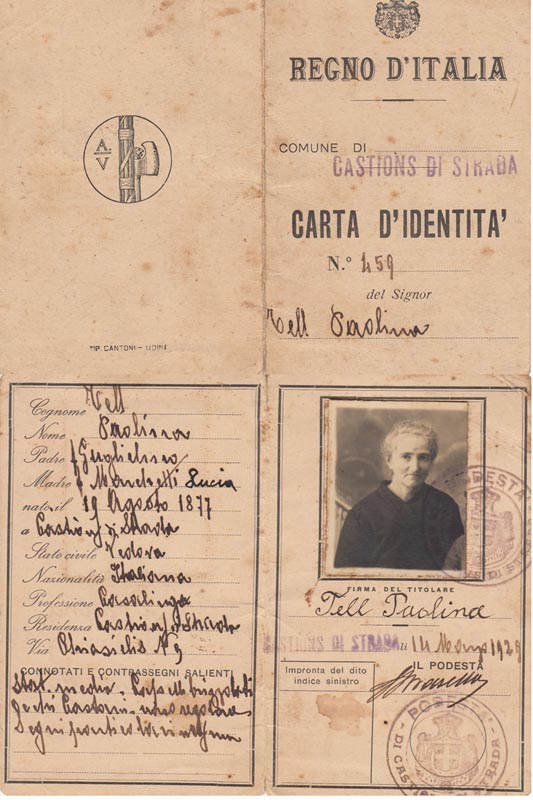 REGNO D'ITALIA
COMUNE DI
CASTIONS DI STRADA
CARTA D'IDENTITA'
N.º 459
del Signor
Tell Paolina
A.
V
TIP. CANTONI - UDINE
Cognome Tell
Nome Paolina
Padre f Guglielmo
Madre f Marchetti Lucia
nato il 19 Agosto 1877
a Castions di Strada
Stato civile Vedova
Nazionalità Italiana
Professione Casalinga
Residenza Castions d Strada
Via Chiasielis N 9
CONNOTATI E CONTRASSEGNI SALIENTI
Stat. media. Capelli brizzolati
Occhi Castani. naso regolare
Segni
FIRMA DEL TITOLARE
Tell Paolina
CASTIONS DI STRADA li 14 Marzo 1929
IL PODESTÀ
Impronta del dito
indice sinistro
PODESTA
PODESTA'
DI CASTIONS DI STRADA